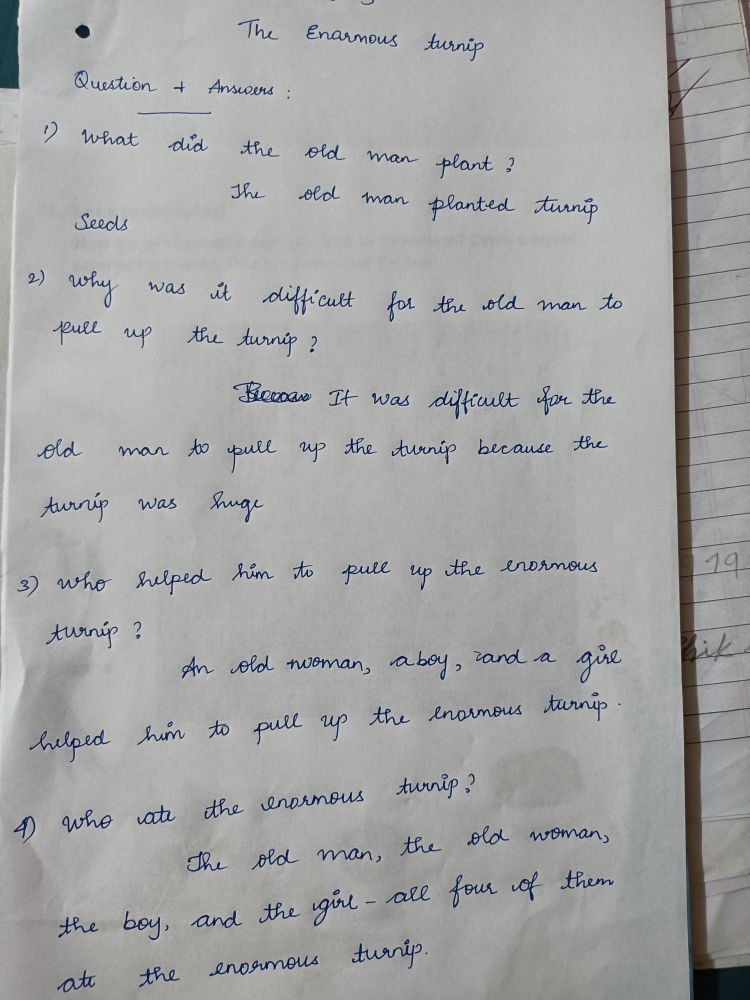 The Enarmous turnip
Question + Answers :
1) What did the old man plant ?
The old man planted turnip
Seeds
2) Why was it difficult for the old man to
pull up the turnip ?
It was difficult for the
old man to pull up the turnip because the
turnip was huge
3) Who helped him to pull up the enormous
turnip ?
An old woman, a boy, and a girl
helped him to pull up the enormous turnip.
4) Who ate the enormous turnip ?
The old man, the old woman,
the boy, and the girl - all four of them
ate the enormous turnip.